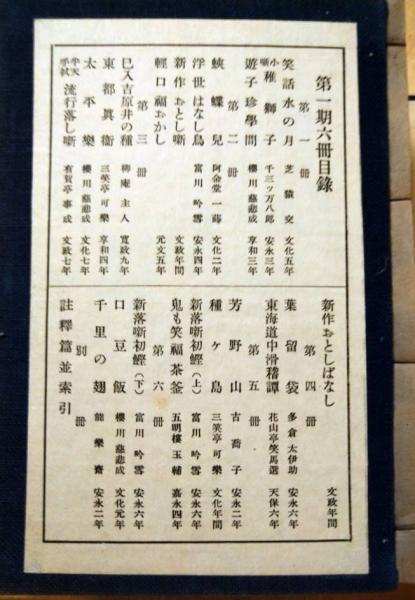 第一期六冊目錄
第一冊
笑話水の月 芝猿交 文化五年
小噺 稚獅子 千三ッ万八郎 安永三年
遊子珍學問 櫻川慈悲成 享和三年
第二冊
蛺蝶兒 阿金堂一蒔 文化二年
浮世はなし鳥 富川吟雪 安永四年
新作おとし噺 文政年間
輕口福おかし 元文五年
第三冊
巳入吉原井の種 柳庵主人 寬政九年
東都眞衞 三笑亭可樂 享和四年
太平樂 櫻川慈悲成 文化七年
半天手拭 流行落し噺 有賀亭事成 文政七年
新作おとしばなし 文政年間
第四冊
葉留袋 多倉太伊助 安永六年
東海道中滑稽譚 花山亭笑馬選 天保六年
第五冊
芳野山 古喬子 安永二年
種ヶ島 三笑亭可樂 文化年間
新落噺初鰹(上) 富川吟雪 安永六年
鬼も笑福茶釜 五明樓玉輔 嘉永四年
第六冊
新落噺初鰹(下) 富川吟雪 安永六年
口豆飯 櫻川慈悲成 文化元年
千里の翅 能樂齋 安永二年
別冊
註釋篇並索引